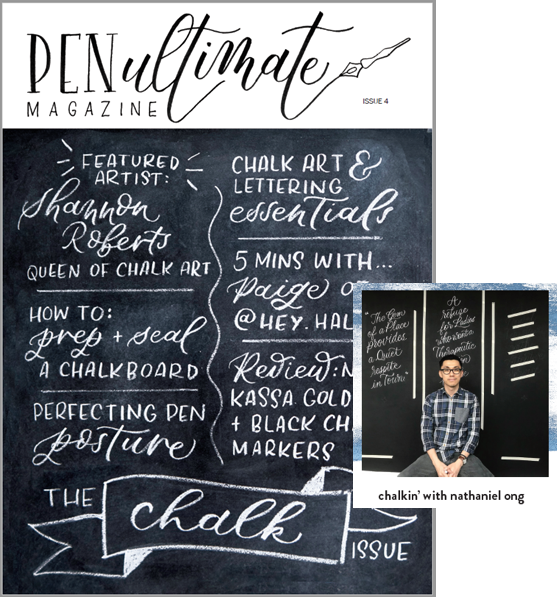 PENultimate
MAGAZINE
ISSUE 4
FEATURED
ARTIST:
Shannon
Roberts
QUEEN OF CHALK ART
HOW TO:
prep + seal
A CHALKBOARD
PERFECTING PEN
posture
CHALK ART &
LETTERING
essentials
5 MINS WITH...
paige
@HEY.HAL
Review: N
KASSA GOLD
+ BLACK CH
MARKERS
THE chalk ISSUE
"The
of a Place
provides
a Quiet
respite
in Town"
A
refuge
for Ladies
Therapeutic
chalkin' with nathaniel ong